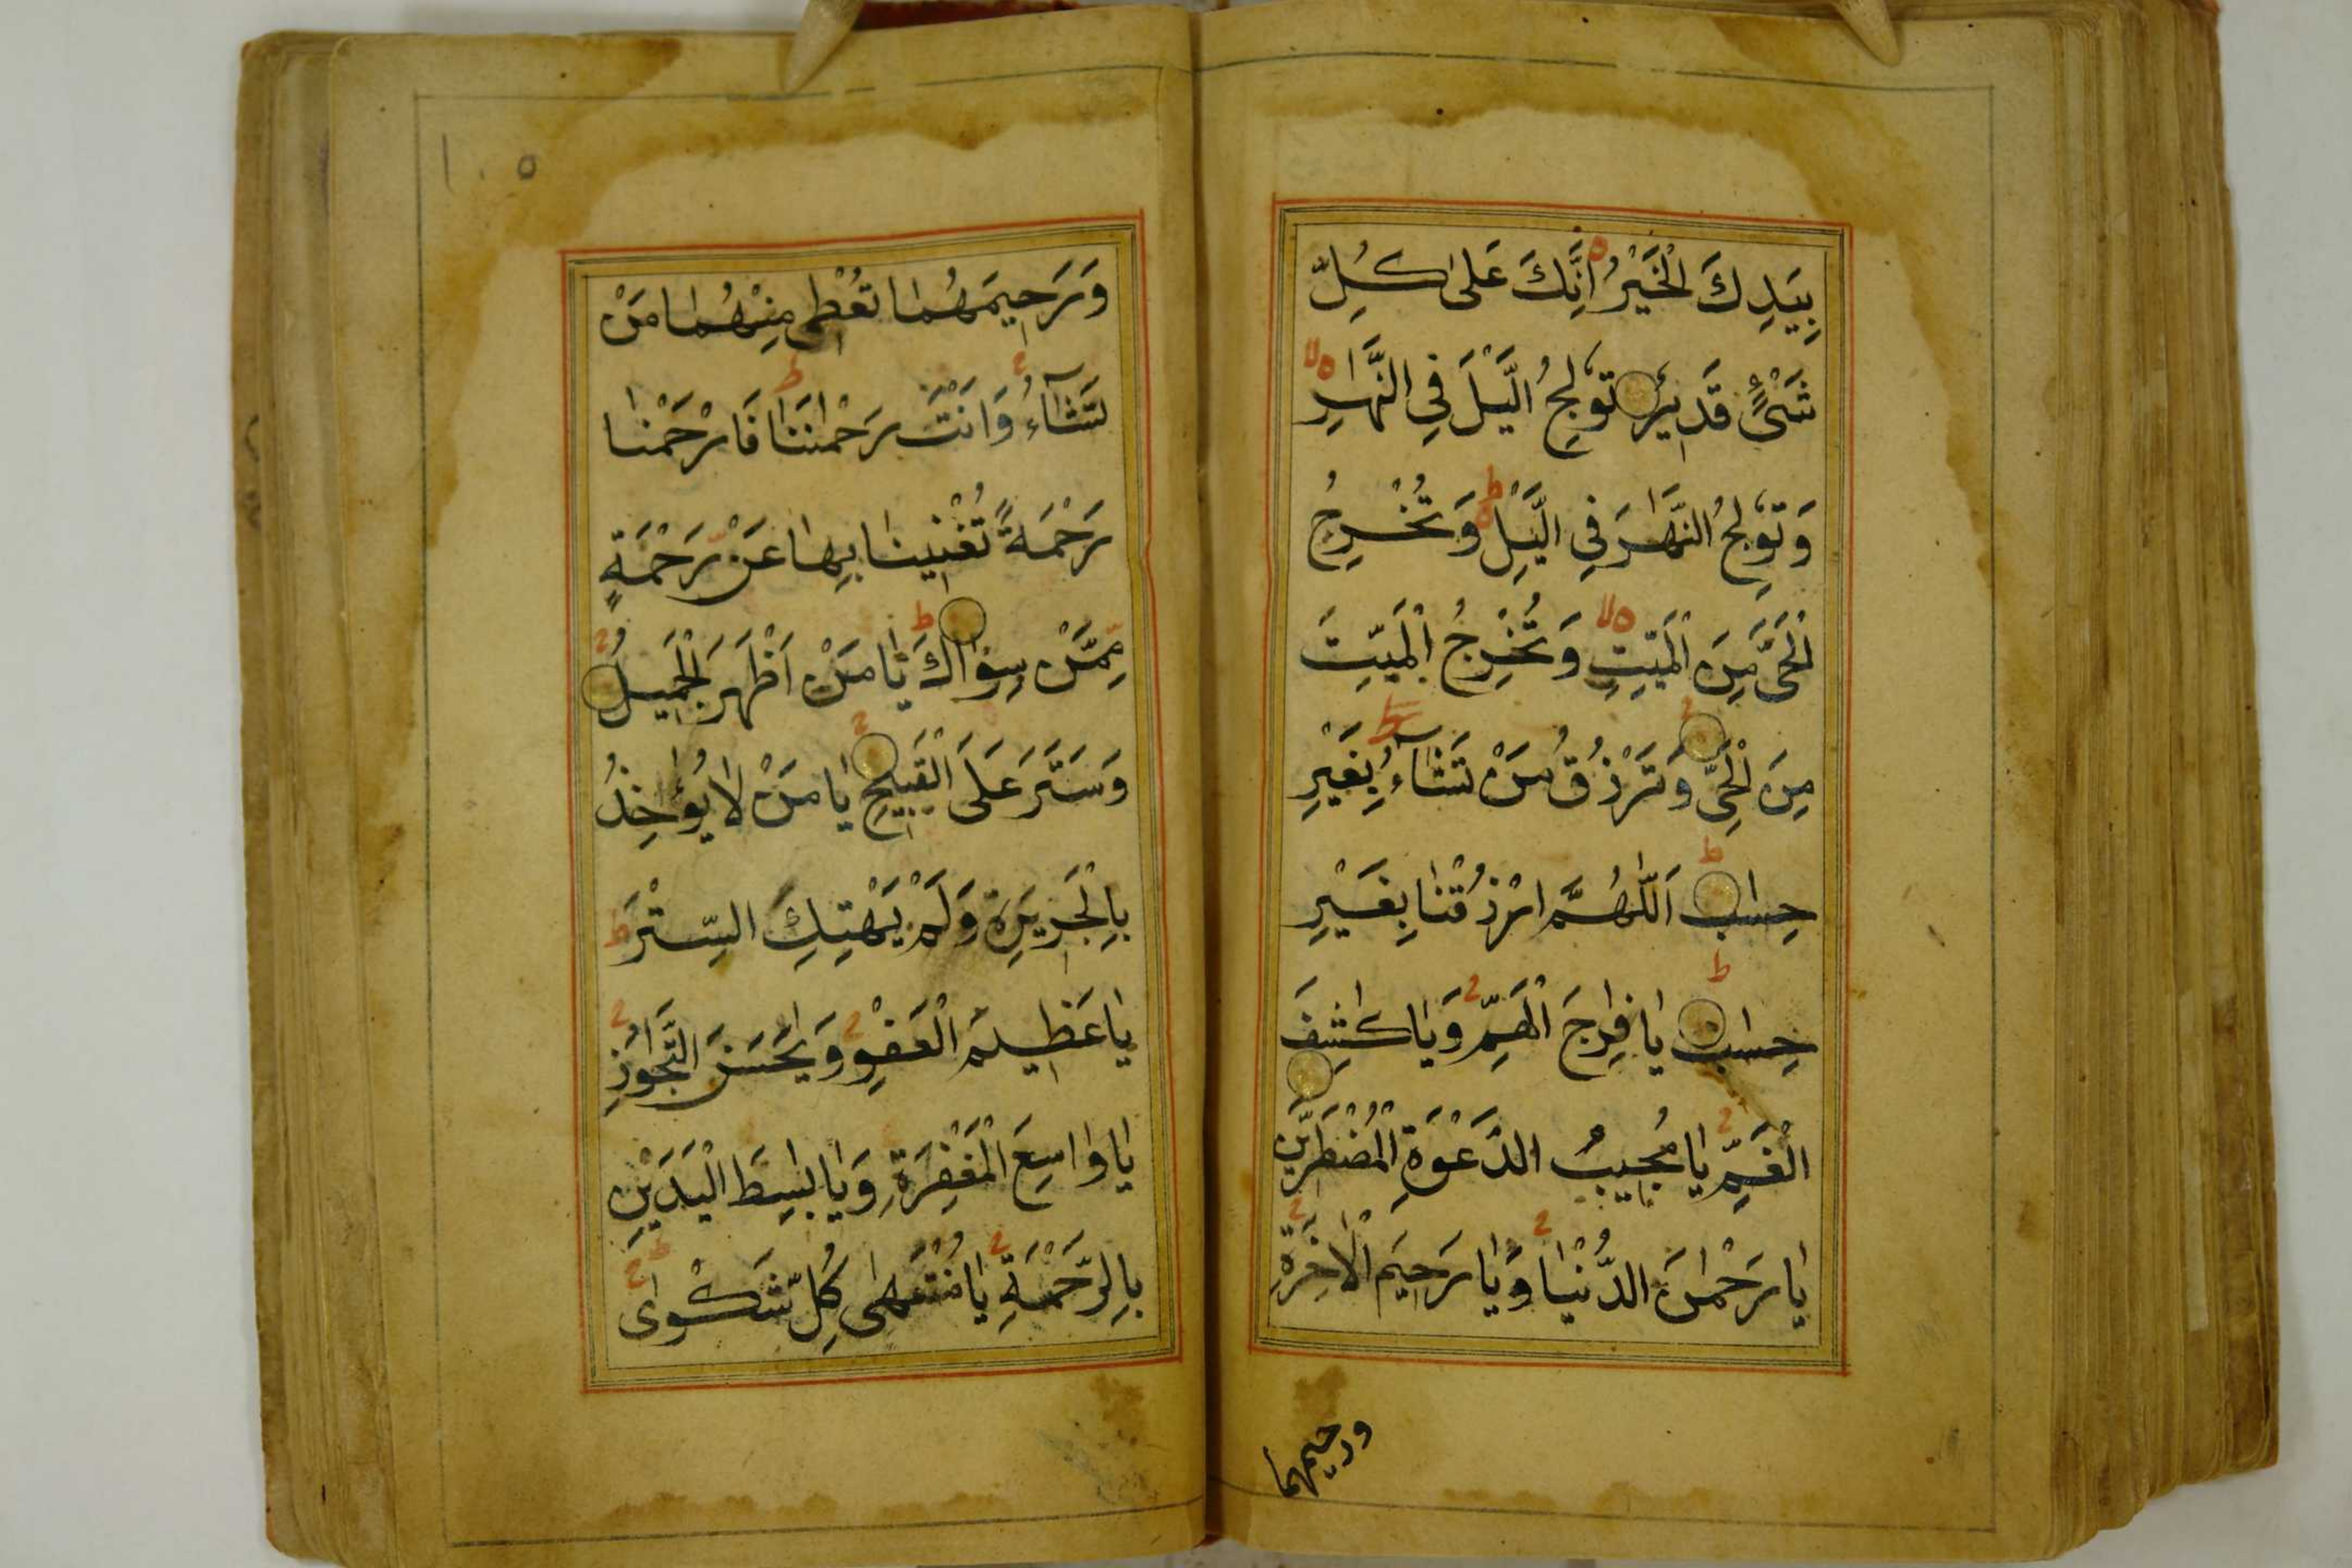 بِيَدِكَ الْخَيْرُ اِنَّكَ عَلٰى كُلِّ
شَيْءٍ قَدِيْرٌ تُوْلِجُ الَّيْلَ فِي النَّهٰرِ
وَتُوْلِجُ النَّهٰرَ فِي الَّيْلِ وَتُخْرِجُ
الْحَيَّ مِنَ الْمَيِّتِ وَتُخْرِجُ الْمَيِّتَ
مِنَ الْحَيِّ وَتَرْزُقُ مَنْ تَشَآءُ بِغَيْرِ
حِسٰابٍ اَللّٰهُمَّ ارْزُقْنٰا بِغَيْرِ
حِسٰابٍ يٰا فٰرِجَ الْهَمِّ وَيٰا كٰشِفَ
الْغَمِّ يٰا مُجِيبُ الدَّعْوَةِ الْمُضْطَرِّيْنَ
يٰا رَحْمٰنَ الدُّنْيٰا وَيٰا رَحِيَم الْاٰخِرَةِ
ورحیمهما
۱۰۵
وَرَحِيمَهُمٰا تُعْطِي مِنْهُمٰا مَنْ
تَشَآءُ وَاَنْتَ رَحْمٰنُنَا فَارْحَمْنٰا
رَحْمَةً تُغْنِينٰا بِهٰا عَنْ رَحْمَةٍ
مِمَّنْ سِوٰاكَ يٰا مَنْ اَظْهَرَ الْجَمِيلُ
وَسَتَرَ عَلَى الْقَبِيْحِ يٰا مَنْ لٰا يُؤٰاخِذُ
بِالْجَرِيرَةِ وَلَمْ يَهْتِكِ السِّتْرَ
يٰا عَظِيْمَ الْعَفْوِ وَيٰحَسَنَ التَّجٰاوُزِ
يٰا وٰاسِعَ الْمَغْفِرَةِ وَيٰا بٰسِطَ الْيَدَيْنِ
بِالرَّحْمَةِ يٰا مُنْتَهٰى كُلِّ شَكْوٰى